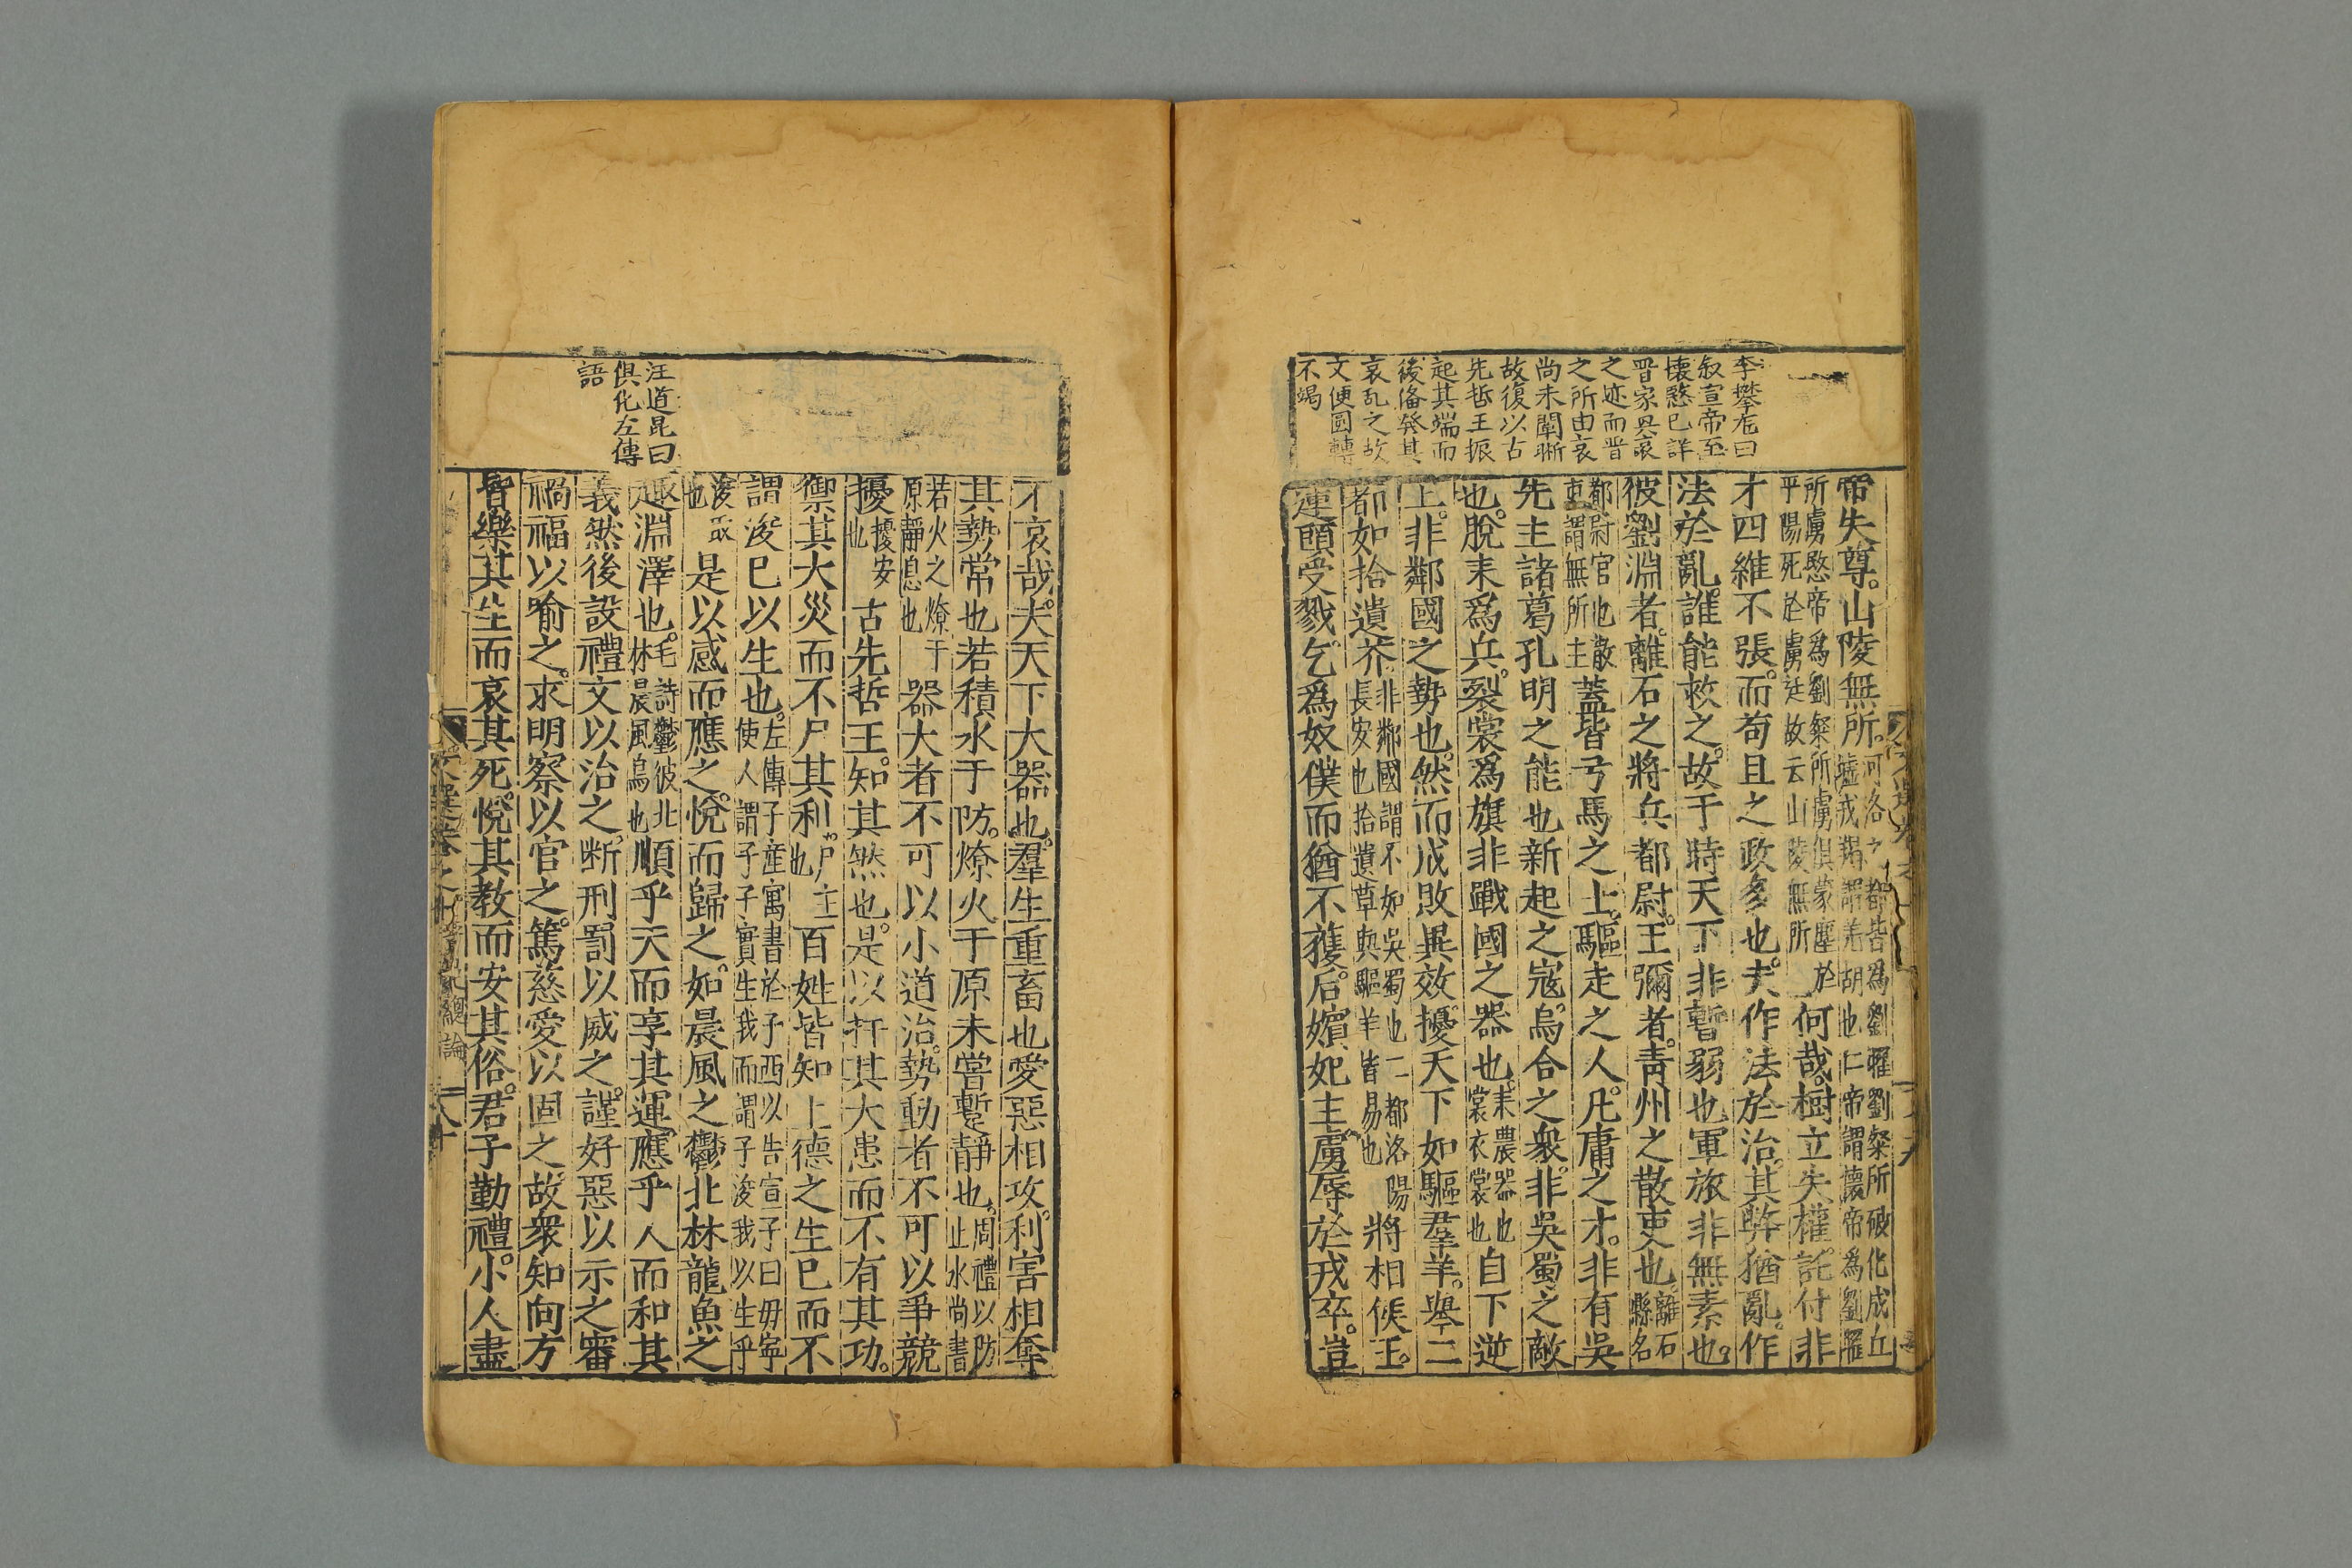 李攀尨曰
叙宣帝至
懷愍已詳
晋家興衰
之迹而晋
之所由衰
尚未闡晰
故復以古
先哲王振
起其端而
後俻發其
衰乱之故
文便圓轉
不竭
帝失尊。山陵無所。河洛之都皆為劉曜劉粲所破化成丘墟戎羯謂羌胡也仁帝謂懷帝為劉曜
所虜愍帝為劉粲所虜俱蒙塵於平陽死於虜廷故云山陵無所何哉。樹立失權。託付非
才四維不張。而苟且之政多也。夫作法於治。其弊猶亂。作
法於亂。誰能救之。故于時天下非暫弱也軍旅非無素也。
彼劉淵者。離石之將兵都尉。王彌者。青州之散吏也。離石縣名
都尉官也散吏謂無所主蓋皆弓馬之士。驅走之人。凡庸之才。非有吳
先主諸葛孔明之能也新起之寇。烏合之衆。非吳蜀之敵
也。脫耒爲兵。裂裳爲旗非戰國之器也。耒農器也裳衣裳也自下逆
上。非鄰國之勢也。然而成敗異效擾天下如驅羣羊。舉二
都如拾遺芥非鄰國謂不如吳蜀也二都洛陽長安也拾遺草與驅羊皆易也將相侯王。
連頸受戮。乞爲奴僕而猶不獲。后嬪妃主。虜辱於戎卒。豈
汪道昆曰
俱化左傳
語
不哀哉。夫天下大器也。羣生重畜也愛惡相攻。利害相奪
其勢常也若積水于防。燎火于原未嘗暫靜也。周禮以防止水尚書
若火之燎于原靜息也器大者不可以小道治。勢動者不可以爭競
擾擾安也古先哲王。知其然也。是以扞其大患而不有其功。
禦其大災而不尸其利。尸主也百姓皆知上德之生巳而不
謂浚巳以生也。左傳子産寓書於子西以告宣子曰毋寧使人謂子子實生我而謂子浚我以生乎
浚取也是以感而應之。悅而歸之。如晨風之鬱北林龍魚之
趣淵澤也。毛詩鬱彼北林晨風鳥也順乎天而享其運應乎人而和其
義然後設禮文以治之。断刑罰以威之。謹好惡以示之審
禍福以喻之。求明察以官之。篤慈愛以固之。故衆知向方
皆樂其生而哀其死。悅其教而安其俗。君子勤禮。小人盡